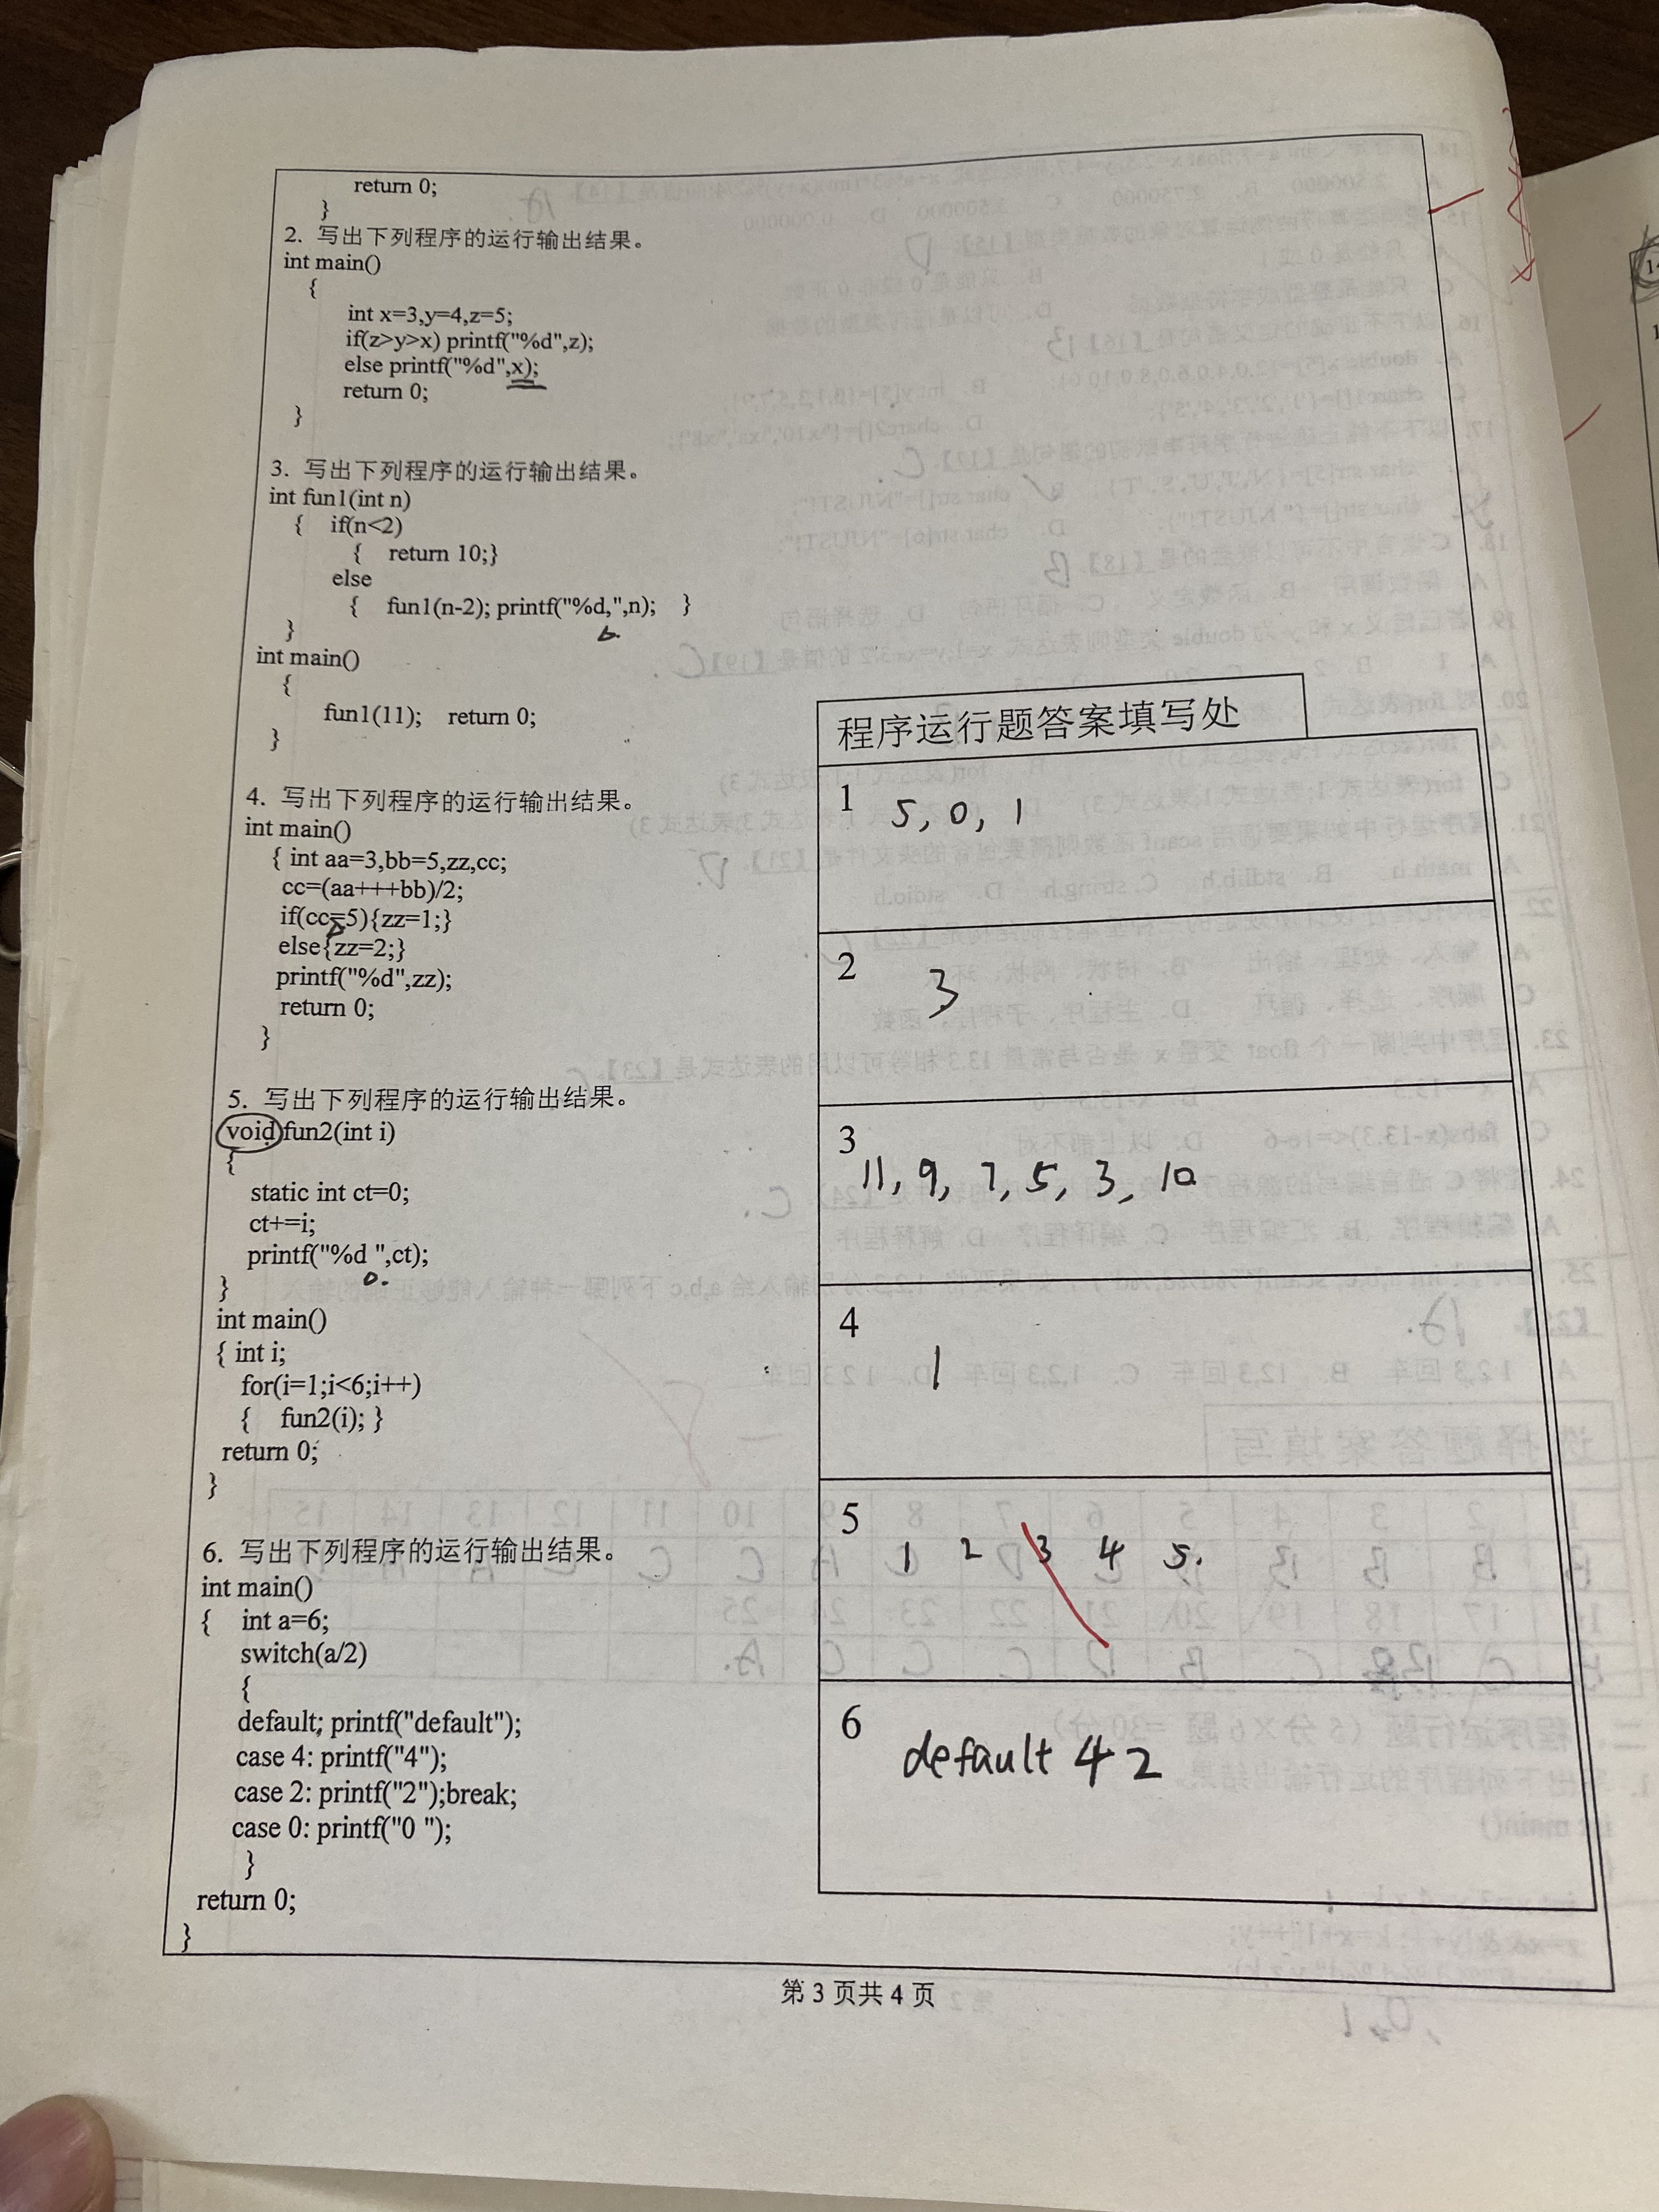 return 0;
}
2. 写出下列程序的运行输出结果。
int main()
{
int x=3,y=4,z=5;
if(z>y>x) printf("%d",z);
else printf("%d",x);
return 0;
}
3. 写出下列程序的运行输出结果。
int fun1(int n)
{ if(n<2)
{ return 10;}
else
{ fun1(n-2); printf("%d,",n); }
}
int main()
{
fun1(11); return 0;
}
4. 写出下列程序的运行输出结果。
int main()
{ int aa=3,bb=5,zz,cc;
cc=(aa+++bb)/2;
if(cc=5){zz=1;}
else{zz=2;}
printf("%d",zz);
return 0;
}
5. 写出下列程序的运行输出结果。
void fun2(int i)
{
static int ct=0;
ct+=i;
printf("%d ",ct);
}
int main()
{ int i;
for(i=1;i<6;i++)
{ fun2(i); }
return 0;
}
6. 写出下列程序的运行输出结果。
int main()
{ int a=6;
switch(a/2)
{
default: printf("default");
case 4: printf("4");
case 2: printf("2");break;
case 0: printf("0 ");
}
return 0;
}
程序运行题答案填写处
1 5, 0, 1
2 3
3 11, 9, 7, 5, 3, 10
4 1
5 1 2 3 4 5.
6 default 4 2
第 3 页共 4 页